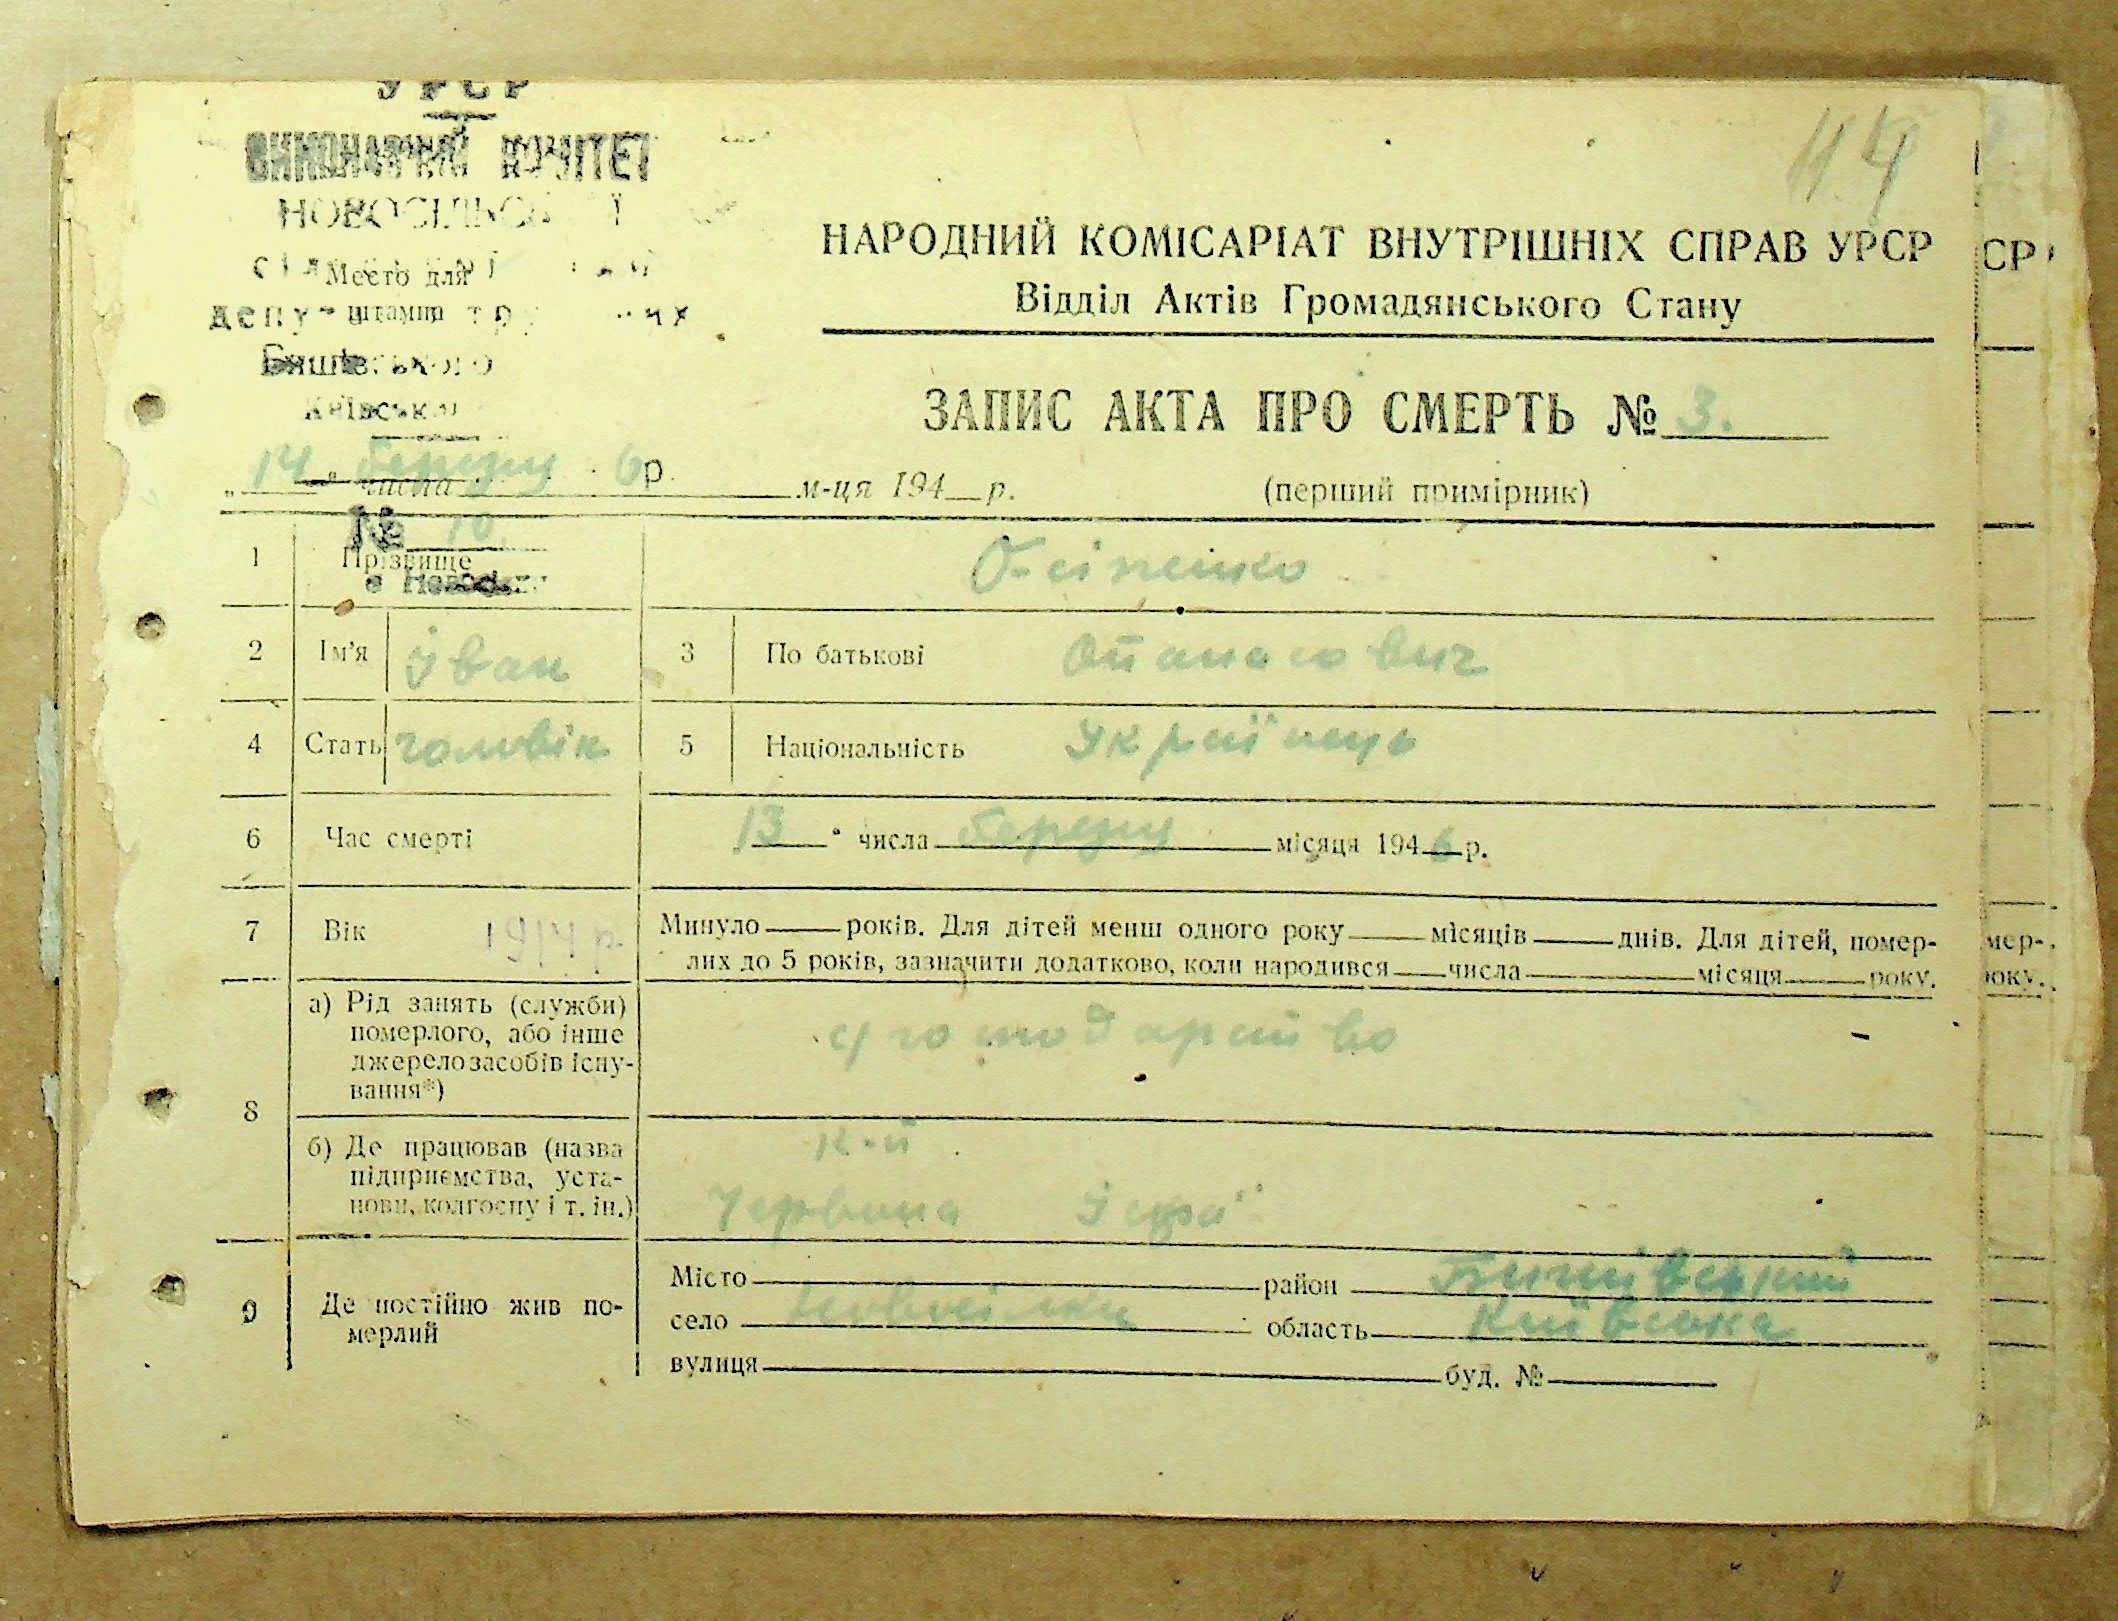 УРСР
114
ВИКОНАВЧИЙ КОМІТЕТ
НОВОСІЛЬСЬ
Место для
штампа
Київськ
НАРОДНИЙ КОМІСАРІАТ ВНУТРІШНІХ СПРАВ УРСР
СР
Відділ Актів Громадянського Стану
ЗАПИС АКТА ПРО СМЕРТЬ № 3.
14 березня 6 р.
„ " числа м-ця 194 р. (перший примірник)
№ 10
1 Прізвище Осіпенко
2 Ім'я Іван 3 По батькові Опанасович
4 Стать чоловік 5 Національність Українець
6 Час смерті 13 " числа березня місяця 1946 р.
7 Вік 1914 р. Минуло року. Для дітей менш одного року місяців днів. Для дітей, помер- мер-
лих до 5 років, зазначити додатково, коли народився числа місяця року. року.
8 а) Рід занять (служби)
померлого, або інше
джерело засобів існу-
вання*)
б) Де працював (назва
підприємства, уста-
нови, колгоспу і т. ін.)
к-п
9 Де постійно жив по-
мерлий
Місто район
село Новосілки область Київська
вулиця буд. №